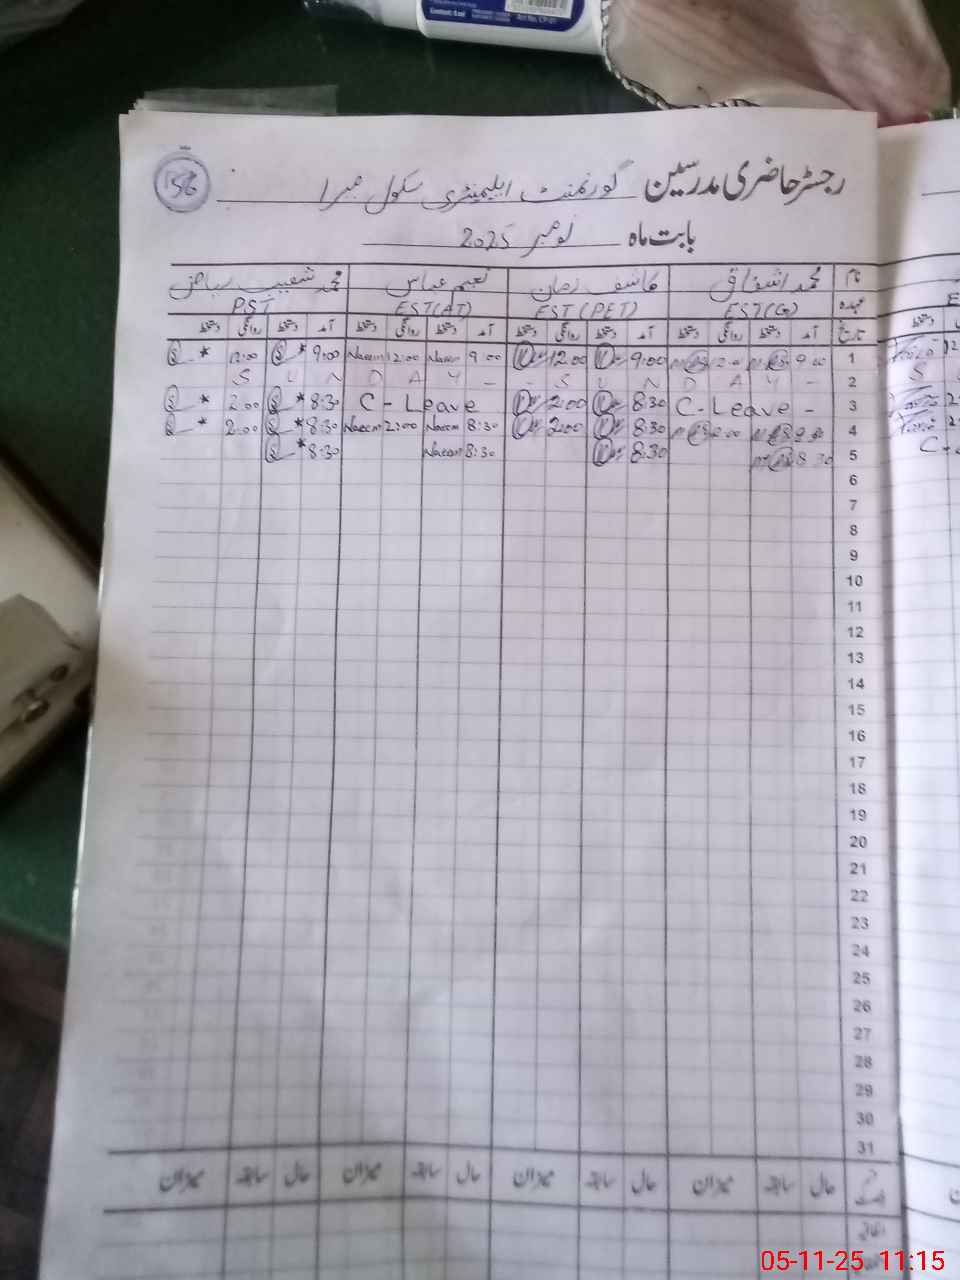 Content: 8 ml
Art No. CP-01
156
رجسٹر حاضری مدرسین گورنمنٹ ایلیمنٹری سکول نمبر 1
بابت ماہ نومبر 2025
نام محمد اشفاق کاشف زمان نعیم عباس محمد شعیب
عہدہ EST(G) EST(PET) EST(AT) PST
تاریخ آمد دستخط روانگی دستخط آمد دستخط روانگی دستخط آمد دستخط روانگی دستخط آمد دستخط روانگی دستخط
* 12:00 * 9:00 Naeem 12:00 Naeem 9:00 12:00 9:00 12:00 9:00 1
S U N D A Y - - S U N D A Y - 2
* 2:00 * 8:30 C - Leave 2:00 8:30 C - Leave - 3
* 2:00 * 8:30 Naeem 2:00 Naeem 8:30 2:00 8:30 2:00 8:30 4
* 8:30 Naeem 8:30 8:30 8:30 5
6
7
8
9
10
11
12
13
14
15
16
17
18
19
20
21
22
23
24
25
26
27
28
29
30
31
حال سابقہ میزان حال سابقہ میزان حال سابقہ میزان حال سابقہ میزان
05-11-25 11:15